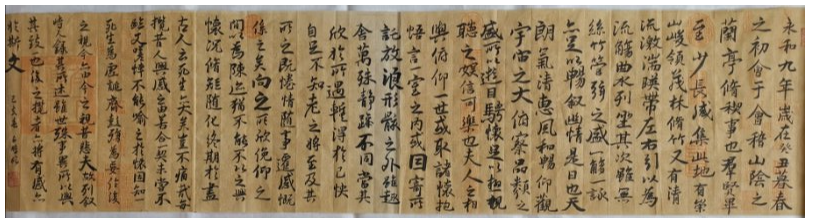 永和九年歲在癸丑暮春
之初會于會稽山陰之
蘭亭脩稧事也羣賢畢
至少長咸集此地有崇
山峻領茂林脩竹又有清
流激湍暎帶左右引以為
流觴曲水列坐其次雖無
絲竹管弦之盛一觴一詠
亦足以暢叙幽情是日也天
朗氣清惠風和暢仰觀
宇宙之大俯察品類之
盛所以遊目騁懷足以極視
聽之娛信可樂也夫人之相
與俯仰一世或取諸懷抱
悟言一室之内或因寄所
託放浪形骸之外雖趣
舍萬殊靜躁不同當其
欣於所遇暫得於己快
自足不知老之將至及其
所之既惓情隨事遷感慨
係之矣向之所欣俛仰之
間以為陳迹猶不能不以之興
懷況脩短隨化終期於盡
古人云死生亦大矣豈不痛哉每
攬昔人興感之由若合一契未嘗不
臨文嗟悼不能喻之於懷固知一
死生為虛誕齊彭殤為妄作後
之視今亦由今之視昔悲夫故列叙
時人錄其所述雖世殊事異所以興
懷其致一也後之攬者亦將有感
於斯文